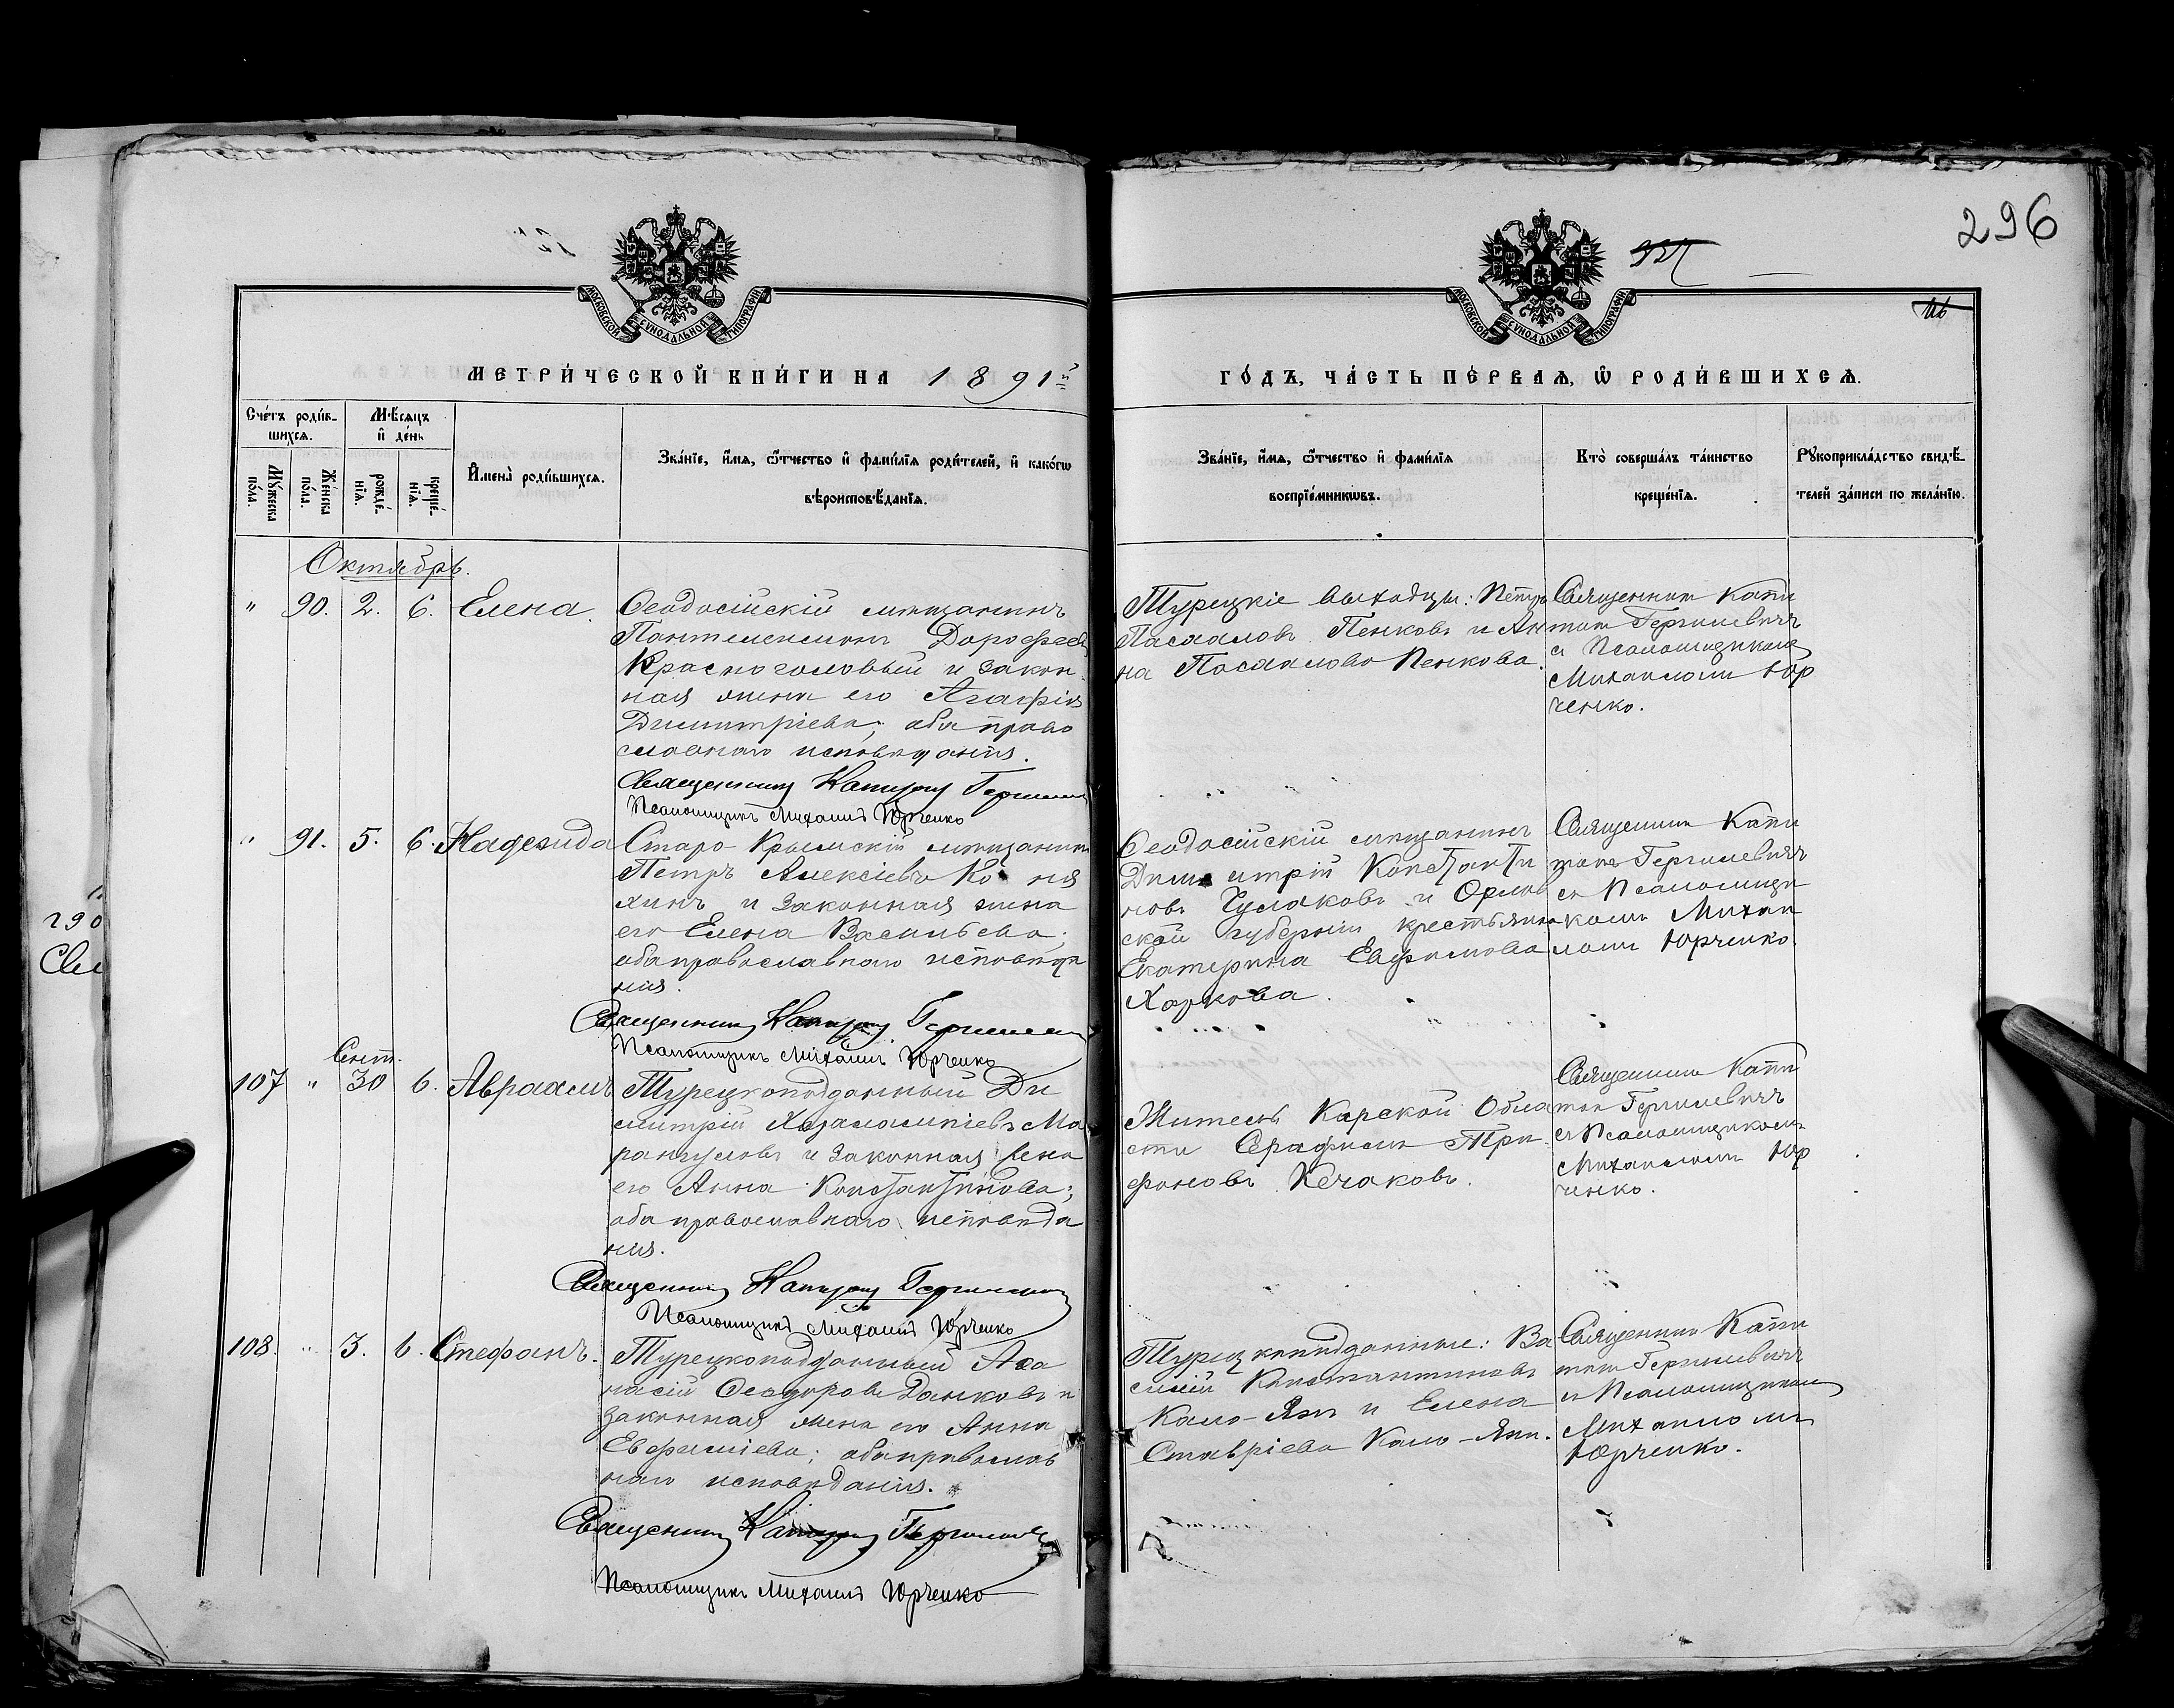 296
МОСКОВСКОЙ СѴНОДАЛЬНОЙ ТИПОГРАФІИ
МОСКОВСКОЙ СѴНОДАЛЬНОЙ ТИПОГРАФІИ
МЕТРИ́ЧЕСКОЙ КНИ́ГИ НА 1891й
ГО́ДЪ, ЧА́СТЬ ПЕ́РВАѦ, Ѽ РОДИ́ВШИХСѦ.
Сче́тъ роди́в-
шихсѧ.
Мꙋ́жеска по́ла.
Же́нска по́ла.
Мѣ́сѧцъ и҆ де́нь
рожде́-
нїѧ.
креще́-
нїѧ.
И҆мена̀ роди́вшихсѧ.
Зва́нїе, и҆́мѧ, ѻ҆́тчество и҆ фами́лїѧ роди́телей, и҆ како́гѡ
вѣроисповѣ́данїѧ.
Зва́нїе, и҆́мѧ, ѻ҆́тчество и҆ фами́лїѧ
воспрїе́мникѡвъ.
Кто̀ соверша́лъ та́инство
креще́нїѧ.
Рꙋкоприкла́дство свидѣ́-
телей за́писи по жела́нїю.
Октябрь.
" 90. 2. 6. Елена.
Ѳеодосійскій мѣщанинъ
Пантелеимонъ Дорофеевъ
Красноголовый и закон
ная жена его Агафія
Димитріева; оба право
славнаго исповѣданія.
Священникъ Капитонъ
Псаломщикъ Михаилъ Юрченко
Турецкіе выходцы: Петръ
Пасхаловъ Пенковъ и Ан
на Пасхалова Пенкова.
Священник Капи
тон Гергилевичъ
съ Псаломщикомъ
Михаиломъ Юр
ченко.
" 91. 5. 6. Надежида
Старо-Крымскій мѣщанинъ
Петръ Алексіевъ
и законная жена
его Елена Васильева;
оба православнаго исповѣда
нія.
Священникъ Капитонъ
Псаломщикъ Михаилъ Юрченко
Ѳеодосійскій мѣщанинъ
Димитрій Константи
новъ Чумаковъ и Орлов
ской губерніи крестьянка
Екатерина Евфимова
Харкова.
Священник Капи
тонъ Гергилевичъ
съ Псаломщи
комъ Михаи
ломъ Юрченко.
Сент.
107 " 30 6. Авраамъ
Турецкоподданный Ди
митрій Харалампіевъ Ма
рангузовъ и законная жена
его Анна Константинова;
оба православнаго исповѣда
нія.
Священникъ Капитонъ
Псаломщикъ Михаилъ Юрченко
Житель Карской Обла
сти Серафимъ Три
фоновъ Кечаковъ.
Священник Капи
тон Гергилевичъ
съ Псаломщикомъ
Михаиломъ Юр
ченко.
108. " 3. 6. Стефанъ.
Турецкоподданный Аѳа
насій Ѳеодоровъ Данковъ и
законная жена его Анна
Евфиміева; оба православ
наго исповѣданія.
Священникъ Капитонъ
Псаломщикъ Михаилъ Юрченко
Турецкоподданные: Ва
силій Константиновъ
Кало-Яни и Елена
Ставріева Кало-Яни.
Священник Капи
тон Гергилевичъ
съ Псаломщиком
Михаиломъ
Юрченко.